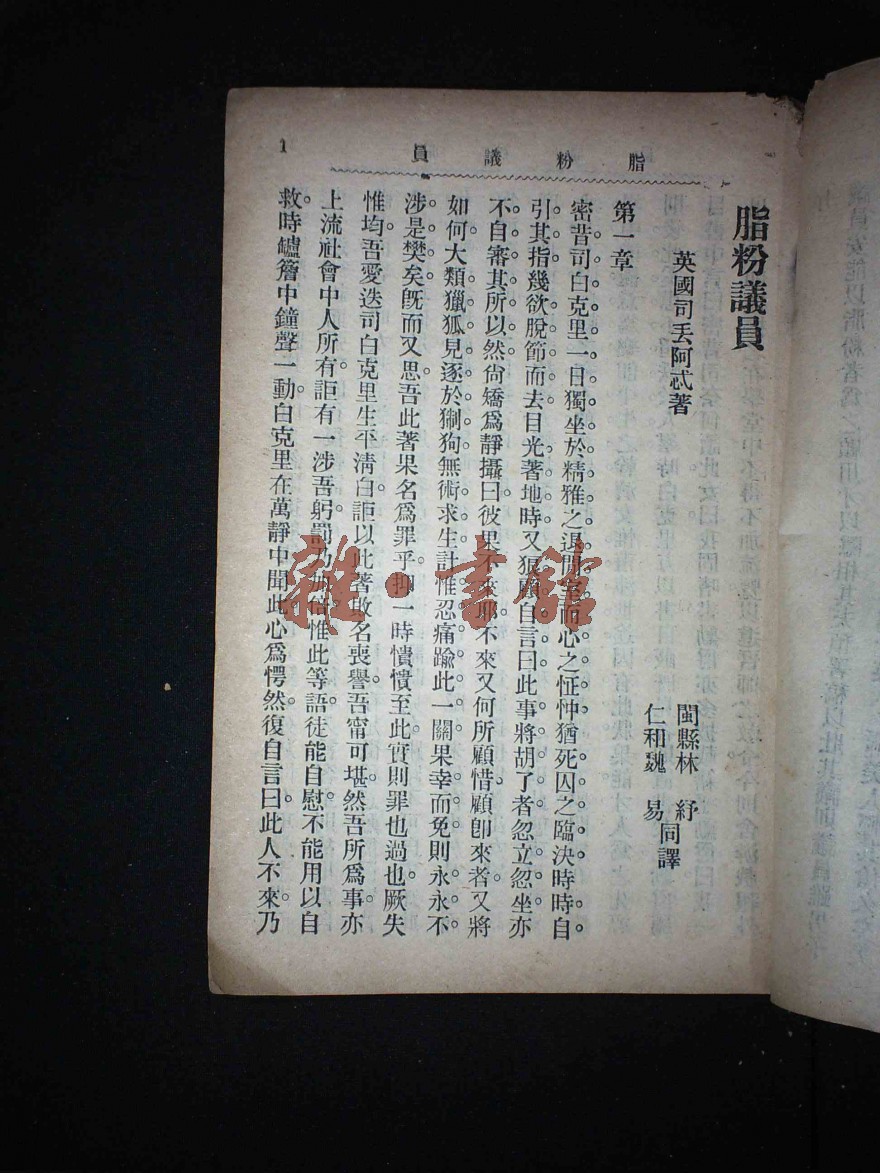 脂粉議員
1
脂粉議員
英國司丟阿忒著
閩縣林　紓
仁和魏　易
同譯
第一章
密昔司白克里一日獨坐於精雅之退閒室而心之怔忡猶死囚之臨決時時自
引其指幾欲脫節而去目光著地時又狼顧自言曰此事將胡了者忽立忽坐亦
不自審其所以然尙矯爲靜攝曰彼果不來耶不來又何所顧惜顧卽來者又將
如何大類獵狐見逐於獵狗無術求生計惟忍痛踰此一關果幸而免則永永不
涉是樊矣旣而又思吾此著果名爲罪乎抑一時憒憒至此實則罪也過也厥失
惟均吾愛迭司白克里生平淸白詎以此著敗名喪譽吾甯可堪然吾所爲事亦
上流社會中人所有詎有一涉吾躬罰乃加倍惟此等語徒能自慰不能用以自
救時鑪簷中鐘聲一動白克里在萬靜中聞此心爲愕然復自言曰此人不來乃
雜·書館